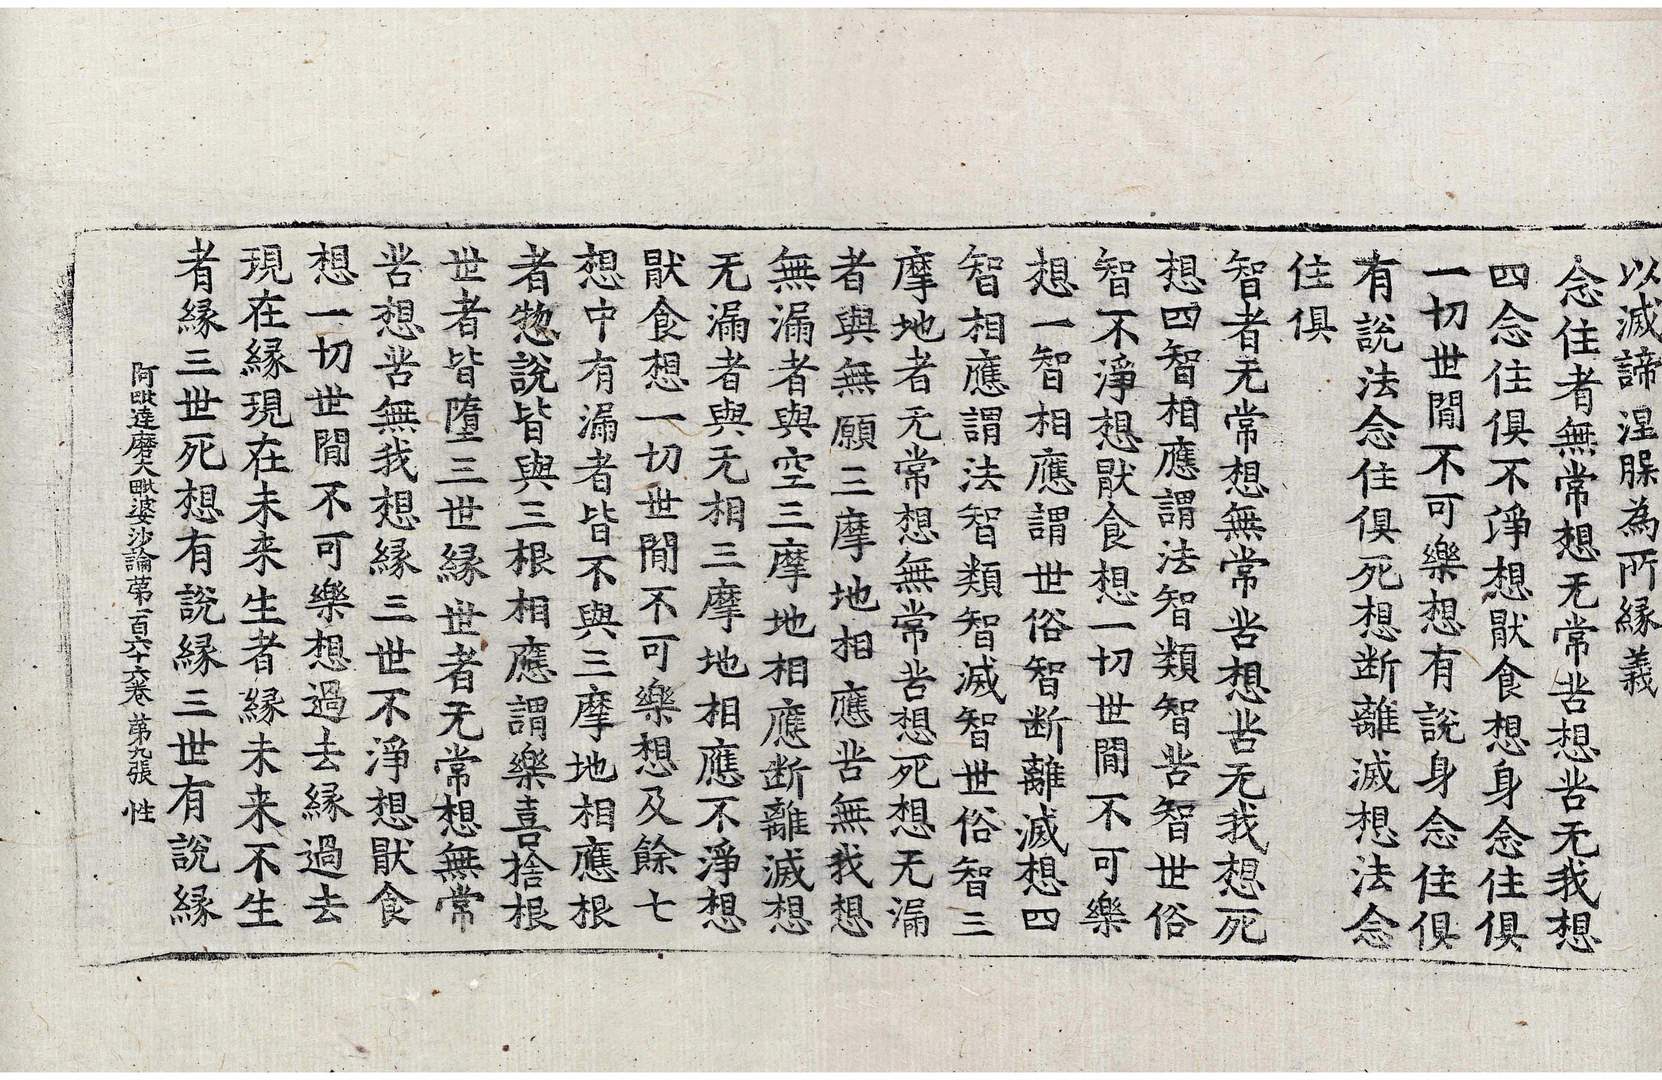 以滅諦涅脲為所緣義
念住者無常想无常苦想苦无我想
四念住俱不淨想猒食想身念住俱
一切世閒不可樂想有說身念住俱
有說法念住俱死想断離滅想法念
住俱
智者无常想無常苦想苦无我想死
想四智相應謂法智類智苦智世俗
智不淨想猒食想一切世閒不可樂
想一智相應謂世俗智断離滅想四
智相應謂法智類智滅智世俗智三
摩地者无常想無常苦想死想无漏
者與無願三摩地相應苦無我想
無漏者與空三摩地相應断離滅想
无漏者與无相三摩地相應不淨想
猒食想一切世閒不可樂想及餘七
想中有漏者皆不與三摩地相應根
者惣說皆與三根相應謂樂喜捨根
世者皆墮三世緣世者无常想無常
苦想苦無我想緣三世不淨想猒食
想一切世閒不可樂想過去緣過去
現在緣現在未来生者緣未来不生
者緣三世死想有說緣三世有說緣
阿毗達磨大毗婆沙論第一百六十六卷 第九張 性